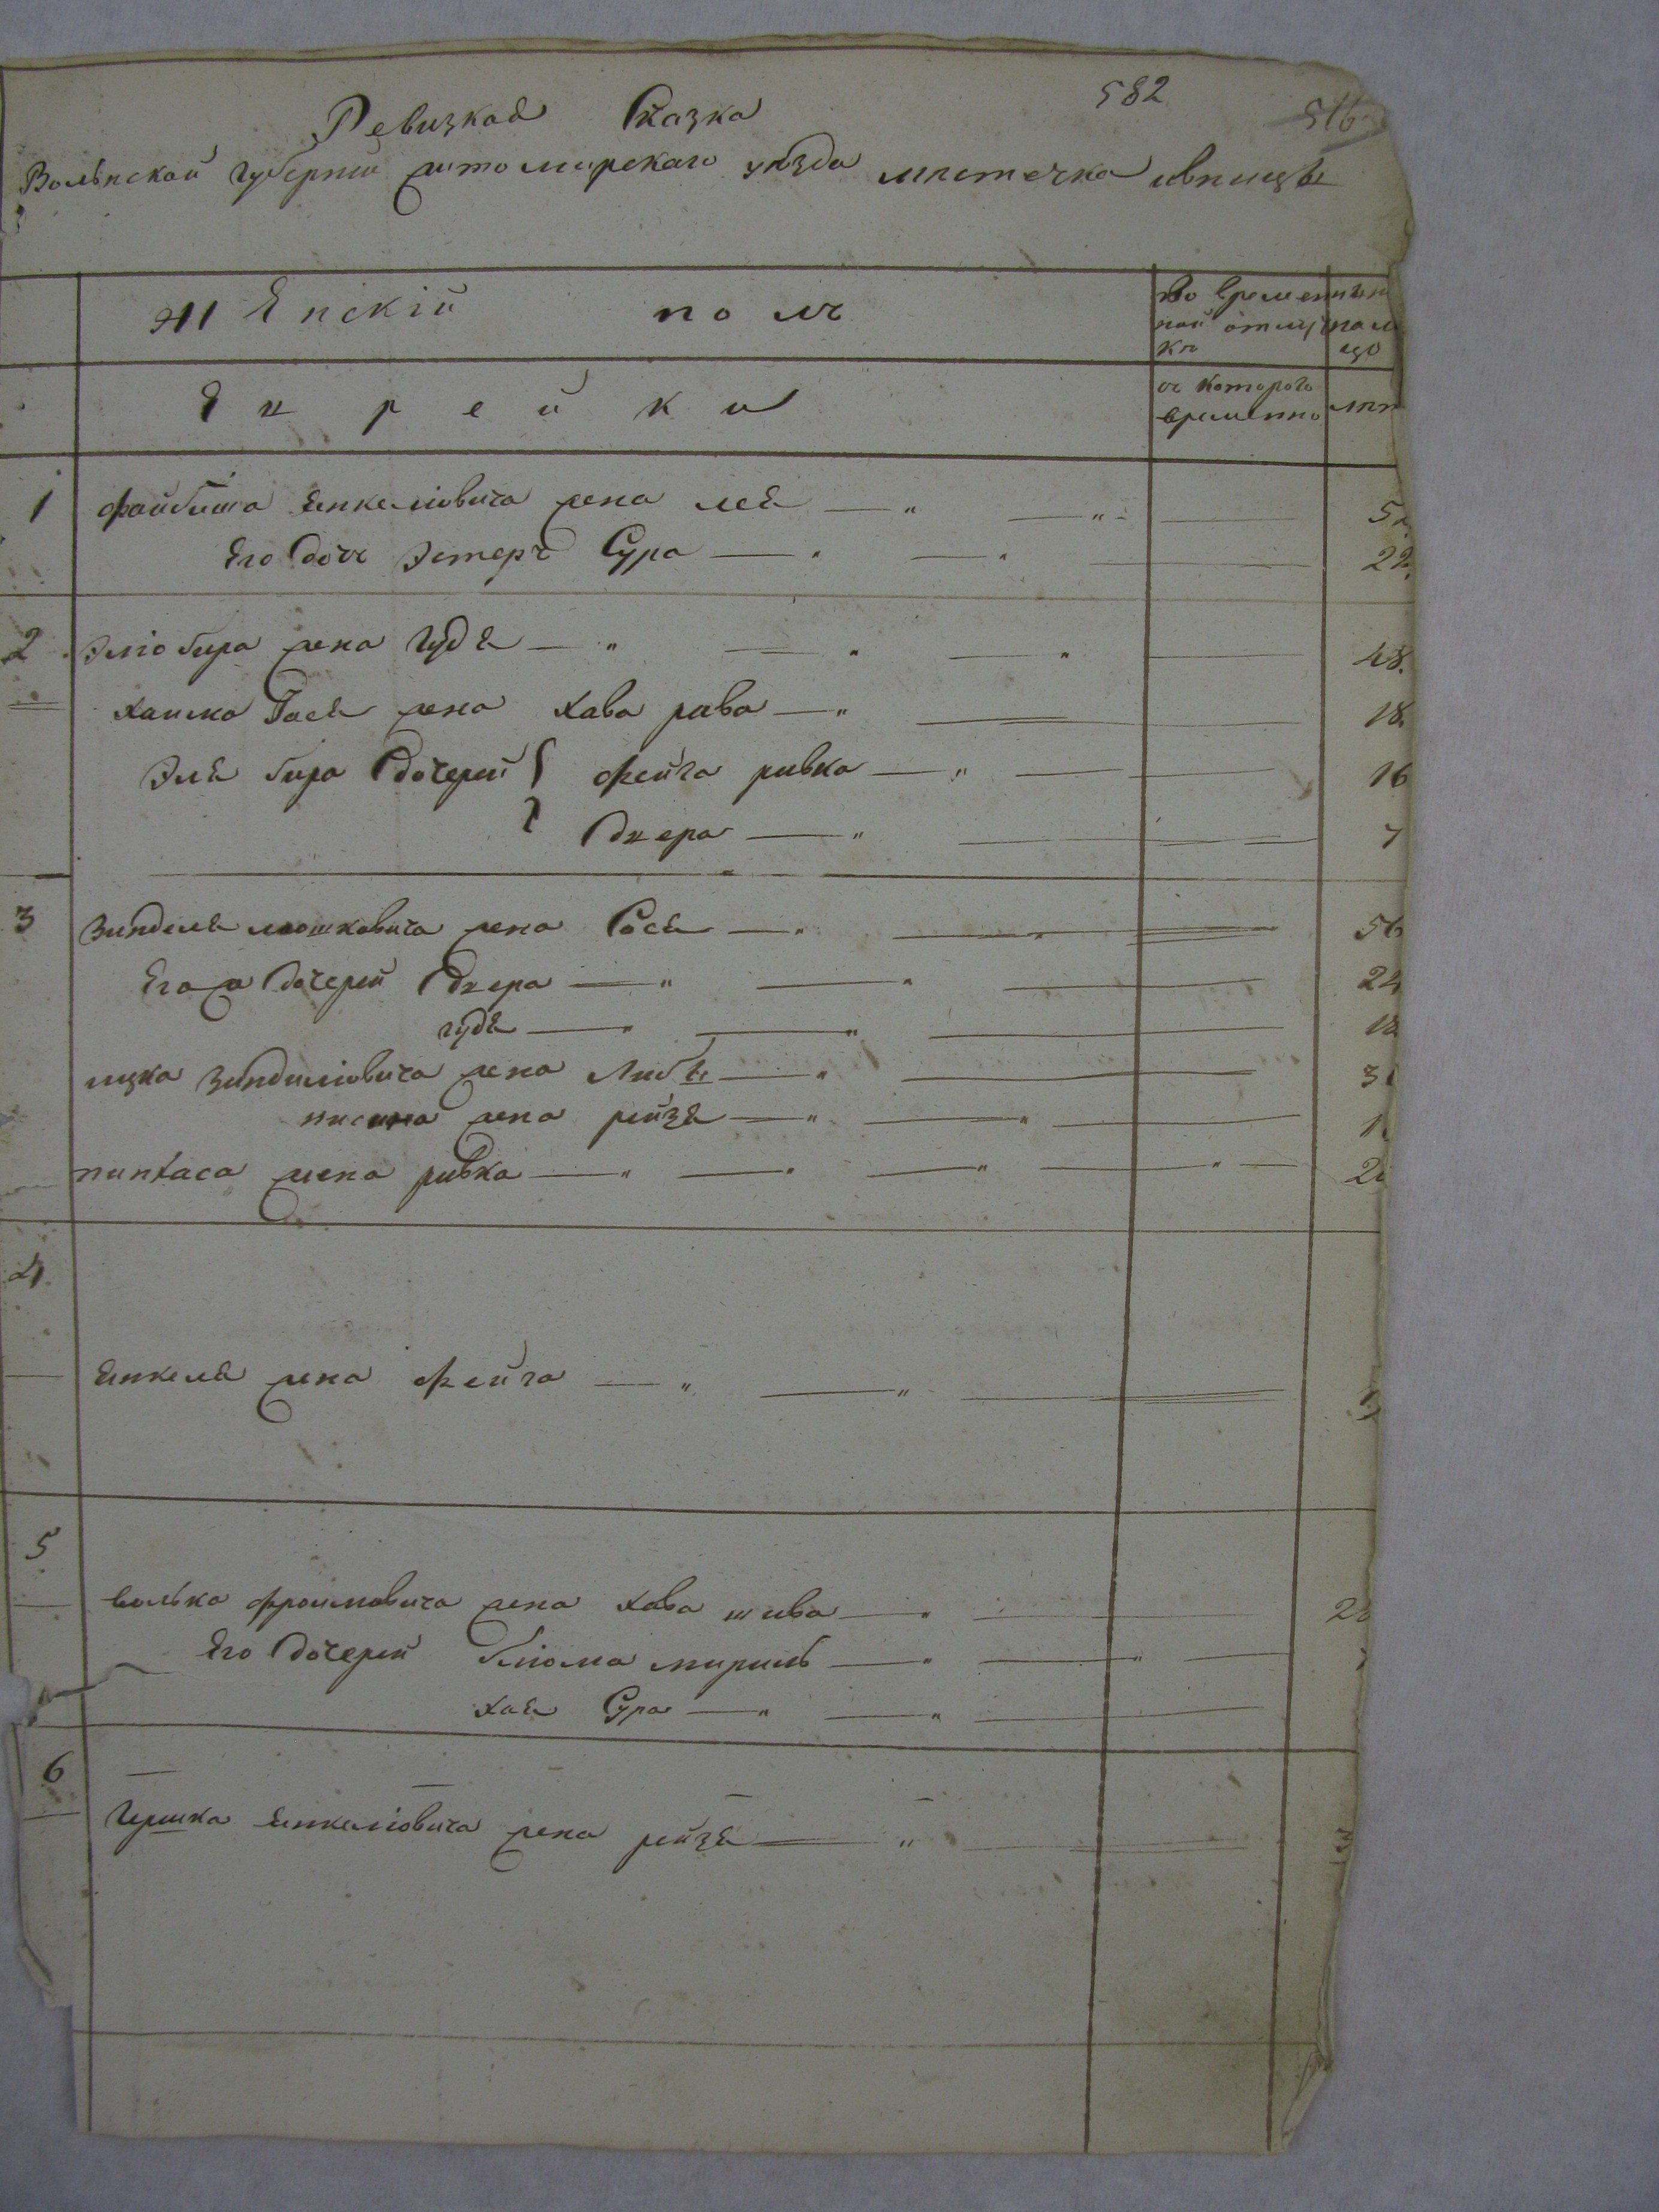 582
516
Ревизкая Сказка
Волынской губернии житомирскаго уезда местечка ивницы
Женскій полъ
Во времен
ной отлуч
ки
ныне
на ли
цо
Еврейки
съ котораго
временно
лет
1 файбиша Янкеліовича жена лея — " — " — 5
Его дочь Эстеръ Сура — " — " — 22.
2 Эліо бира жена гудя — " — " — " — 48.
хаимко Іося жена хава рива — " — 18.
Эля бира дочерей фейга ривка — " — 16
двера — " — 7
3 Зинделя мошковича жена Рося — " — " — 56
Его ж дочерей двера — " — " — 24
гудя — " — " — 18
ицка Зинделіовича жена Либя — " — 3
жена рейзя — " — " — 1
пинхаса жена ривка — " — " — " — " — 2
4
Янкеля жена фейга — " — "
5
волька фроимовича жена хава шива — " — 2
Его дочерей блюма мириль — " — " —
хая Сура — " — "
6
Гершка Янкеліовича жена рейзя — "